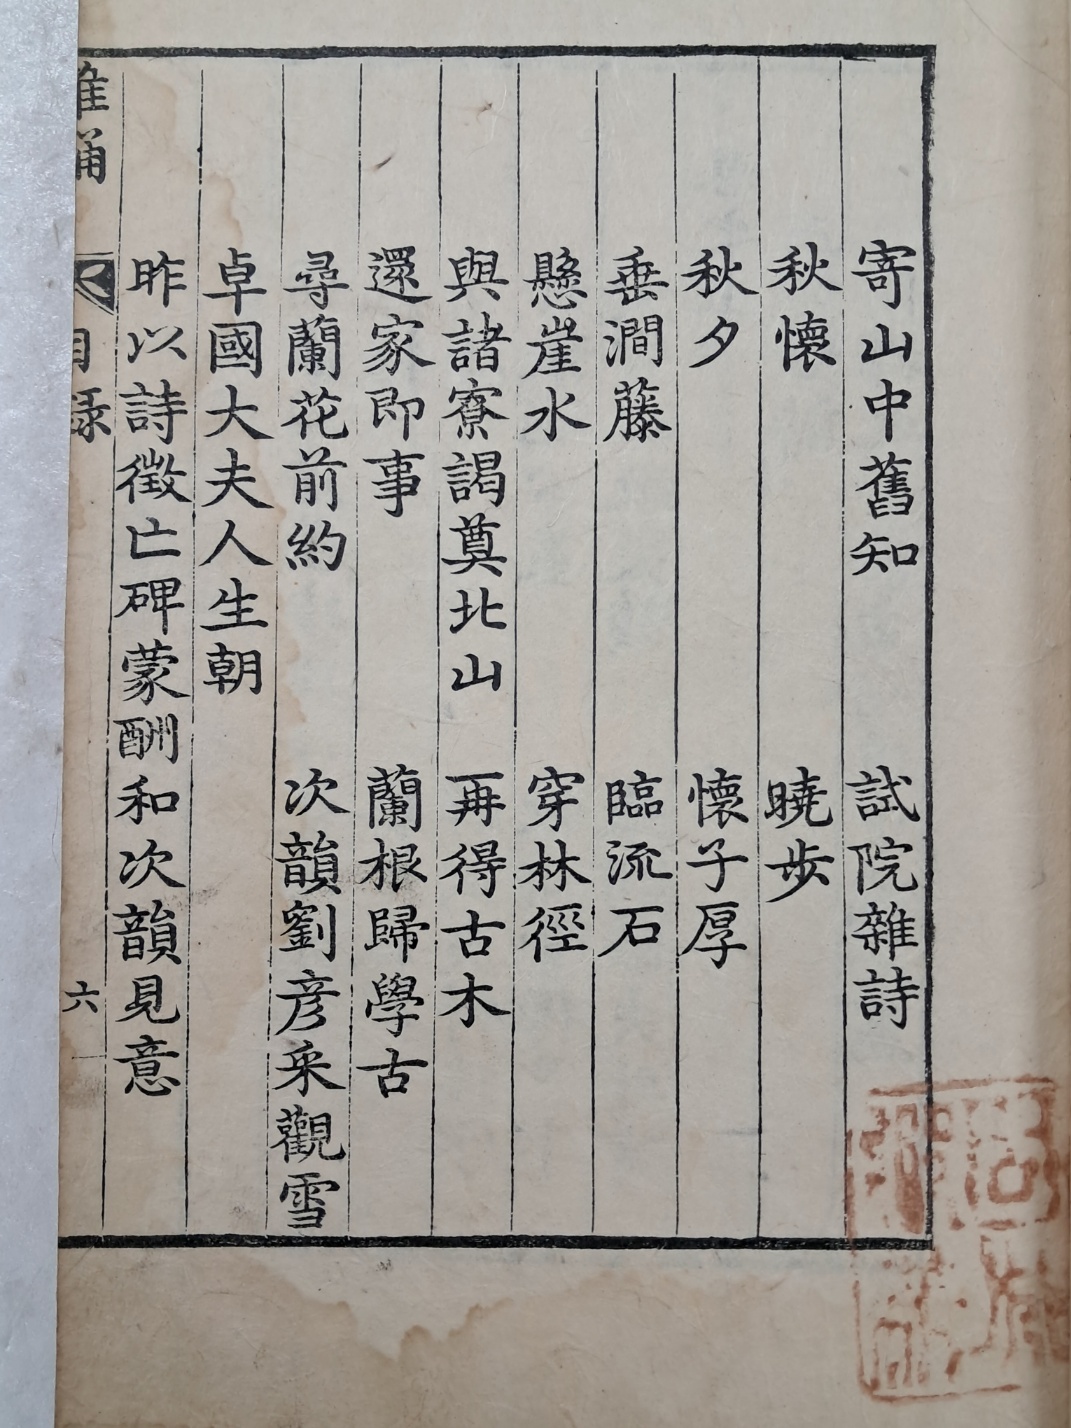 寄山中舊知　試院雜詩
秋懷　曉步
秋夕　懷子厚
垂澗藤　臨流石
懸崖水　穿林徑
與諸寮謁奠北山　再得古木
還家即事　蘭根歸學古
尋蘭花前約　次韻劉彥采觀雪
卓國大夫人生朝
昨以詩徵亡碑蒙酬和次韻見意
目錄　六